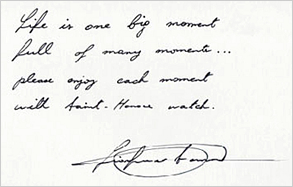 Life is one big moment
full of many moments...
please enjoy each moment
with Saint-Honore watch.